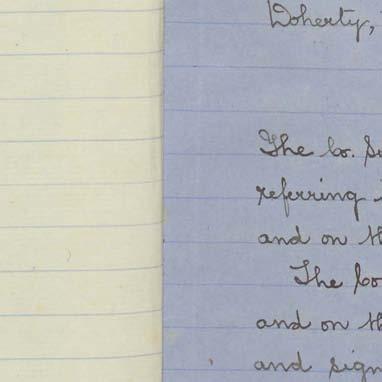 Doherty,
The Co. Se
referring i
and on th
The Co
and on th
and sign